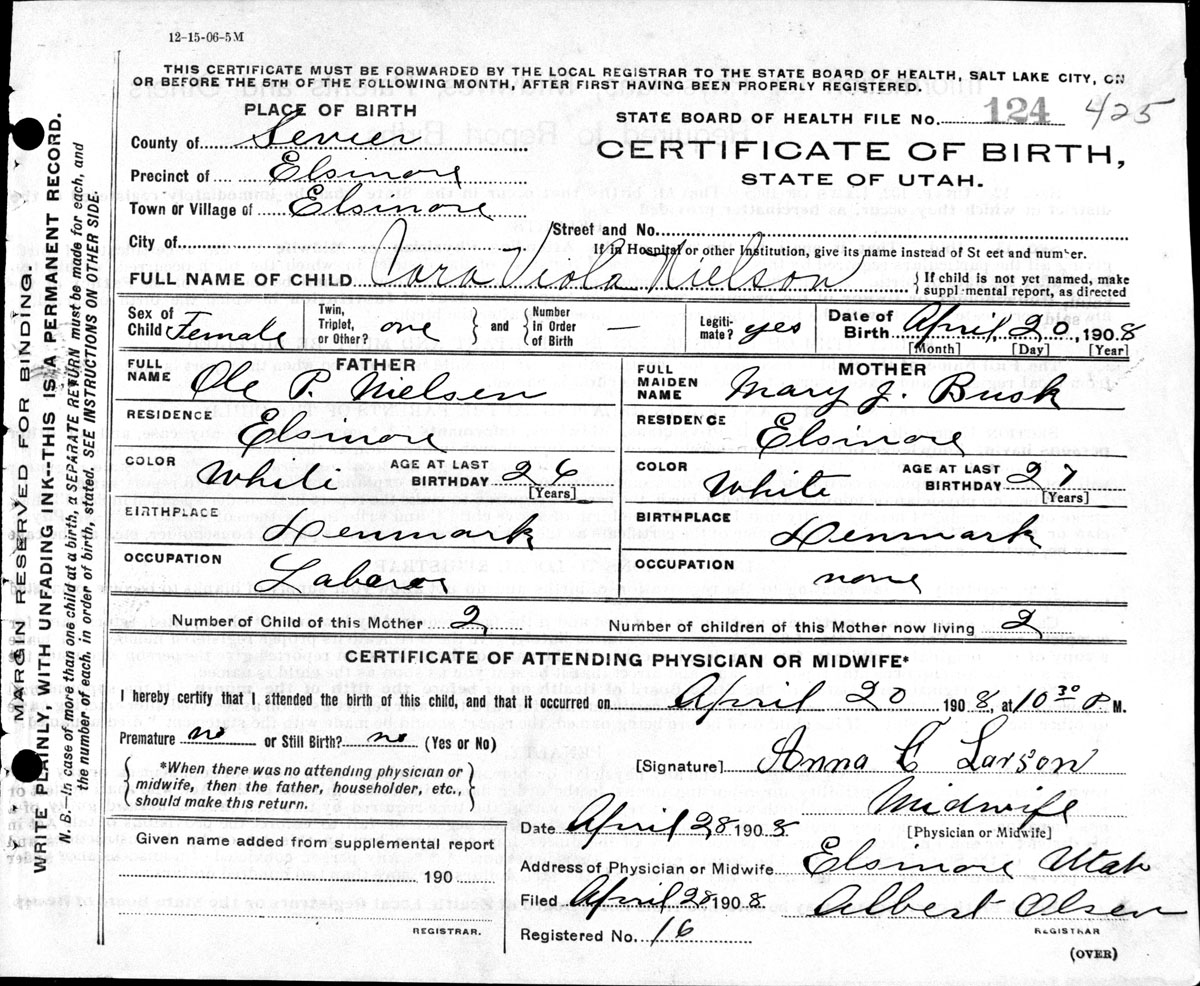 12-15-06-5M
THIS CERTIFICATE MUST BE FORWARDED BY THE LOCAL REGISTRAR TO THE STATE BOARD OF HEALTH, SALT LAKE CITY, ON
OR BEFORE THE 5TH OF THE FOLLOWING MONTH, AFTER FIRST HAVING BEEN PROPERLY REGISTERED.
PLACE OF BIRTH
STATE BOARD OF HEALTH FILE No. 124 425
County of Sevier
CERTIFICATE OF BIRTH,
Precinct of Elsinore
STATE OF UTAH.
Town or Village of Elsinore
Street and No.
City of
If in Hospital or other Institution, give its name instead of St eet and number.
FULL NAME OF CHILD Cora Viola Nielson
If child is not yet named, make
supplmental report, as directed
Sex of Child Female Twin, Triplet, or Other? one and Number in Order of Birth — Legiti-mate? yes Date of Birth April, 20, 1908
[Month] [Day] [Year]
FATHER
FULL NAME Ole P. Nielsen
RESIDENCE
Elsinore
COLOR White AGE AT LAST BIRTHDAY 26
[Years]
BIRTHPLACE
Denmark
OCCUPATION
Laborer
MOTHER
FULL MAIDEN NAME Mary J. Busk
RESIDENCE
Elsinore
COLOR White AGE AT LAST BIRTHDAY 27
[Years]
BIRTHPLACE
Denmark
OCCUPATION
none
Number of Child of this Mother 2 Number of children of this Mother now living 2
CERTIFICATE OF ATTENDING PHYSICIAN OR MIDWIFE*
I hereby certify that I attended the birth of this child, and that it occurred on April 20 1908, at 10 30 P M.
Premature no or Still Birth? no (Yes or No)
*When there was no attending physician or
midwife, then the father, householder, etc.,
should make this return.
[Signature] Anna C Larson
Midwife
Date April 28 1908 [Physician or Midwife]
Given name added from supplemental report
190
REGISTRAR.
Address of Physician or Midwife Elsinore Utah
Filed April 28 1908 Albert Olsen
REGISTRAR
Registered No. 16
(OVER)
MARGIN RESERVED FOR BINDING.
WRITE PLAINLY, WITH UNFADING INK--THIS IS A PERMANENT RECORD.
N. B.--In case of more than one child at a birth, a SEPARATE RETURN must be made for each, and
the number of each. in order of birth, stated. SEE INSTRUCTIONS ON OTHER SIDE.